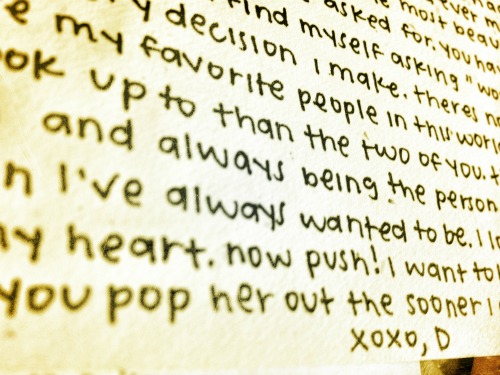 asked for. you hav
find myself asking "wo
y decision i make. theres n
e my favorite people in this worl
ook up to than the two of you. t
and always being the person
n i've always wanted to be. i l
my heart. now push! i want to
you pop her out the sooner i
xoxo, D